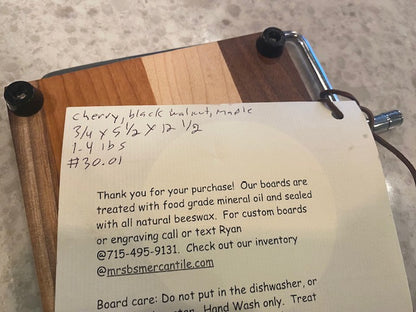 cherry, black walnut, maple
3/4 x 5 1/2 x 12 1/2
1.4 lbs
#30.01
Thank you for your purchase! Our boards are
treated with food grade mineral oil and sealed
with all natural beeswax. For custom boards
or engraving call or text Ryan
@715-495-9131. Check out our inventory
@mrsbsmercantile.com
Board care: Do not put in the dishwasher, or
Hand Wash only. Treat